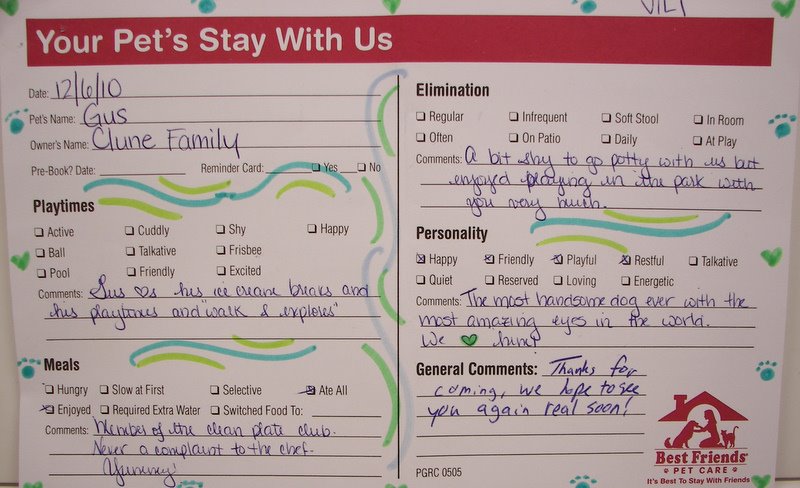 Your Pet's Stay With Us
Date: 12/6/10
Pet's Name: Gus
Owner's Name: Clune Family
Pre-Book? Date: Reminder Card: Yes No
Playtimes
Active Cuddly Shy Happy
Ball Talkative Frisbee
Pool Friendly Excited
Comments: Gus ♡s his ice cream breaks and
his playtimes and "walk & explores"
Meals
Hungry Slow at First Selective Ate All
Enjoyed Required Extra Water Switched Food To:
Comments: Member of the clean plate club.
Never a complaint to the chef.
Yummy!
Elimination
Regular Infrequent Soft Stool In Room
Often On Patio Daily At Play
Comments: A bit shy to go potty with us but
enjoyed playing in the park with
you very much.
Personality
Happy Friendly Playful Restful Talkative
Quiet Reserved Loving Energetic
Comments: The most handsome dog ever with the
most amazing eyes in the world.
We ♥ him!
General Comments: Thanks for
coming, we hope to see
you again real soon!
PGRC 0505
Best Friends
PET CARE
It's Best To Stay With Friends